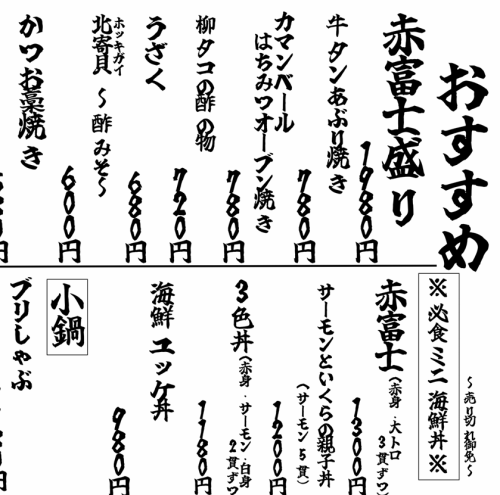 おすすめ
赤富士盛り
1980円
牛タンあぶり焼き
780円
カマンベール
はちみつオーブン焼き
780円
柳タコの酢の物
720円
うざく
680円
北寄貝 ～酢みそ～
ホッキガイ
600円
かつお藁焼き
～売り切れ御免～
※必食ミニ海鮮丼※
赤富士(赤身・大トロ
3貫ずつ
1300円
サーモンといくらの親子丼
(サーモン5貫)
1200円
3色丼(赤身・サーモン・白身
2貫ずつ
1180円
海鮮ユッケ丼
980円
小鍋
ブリしゃぶ